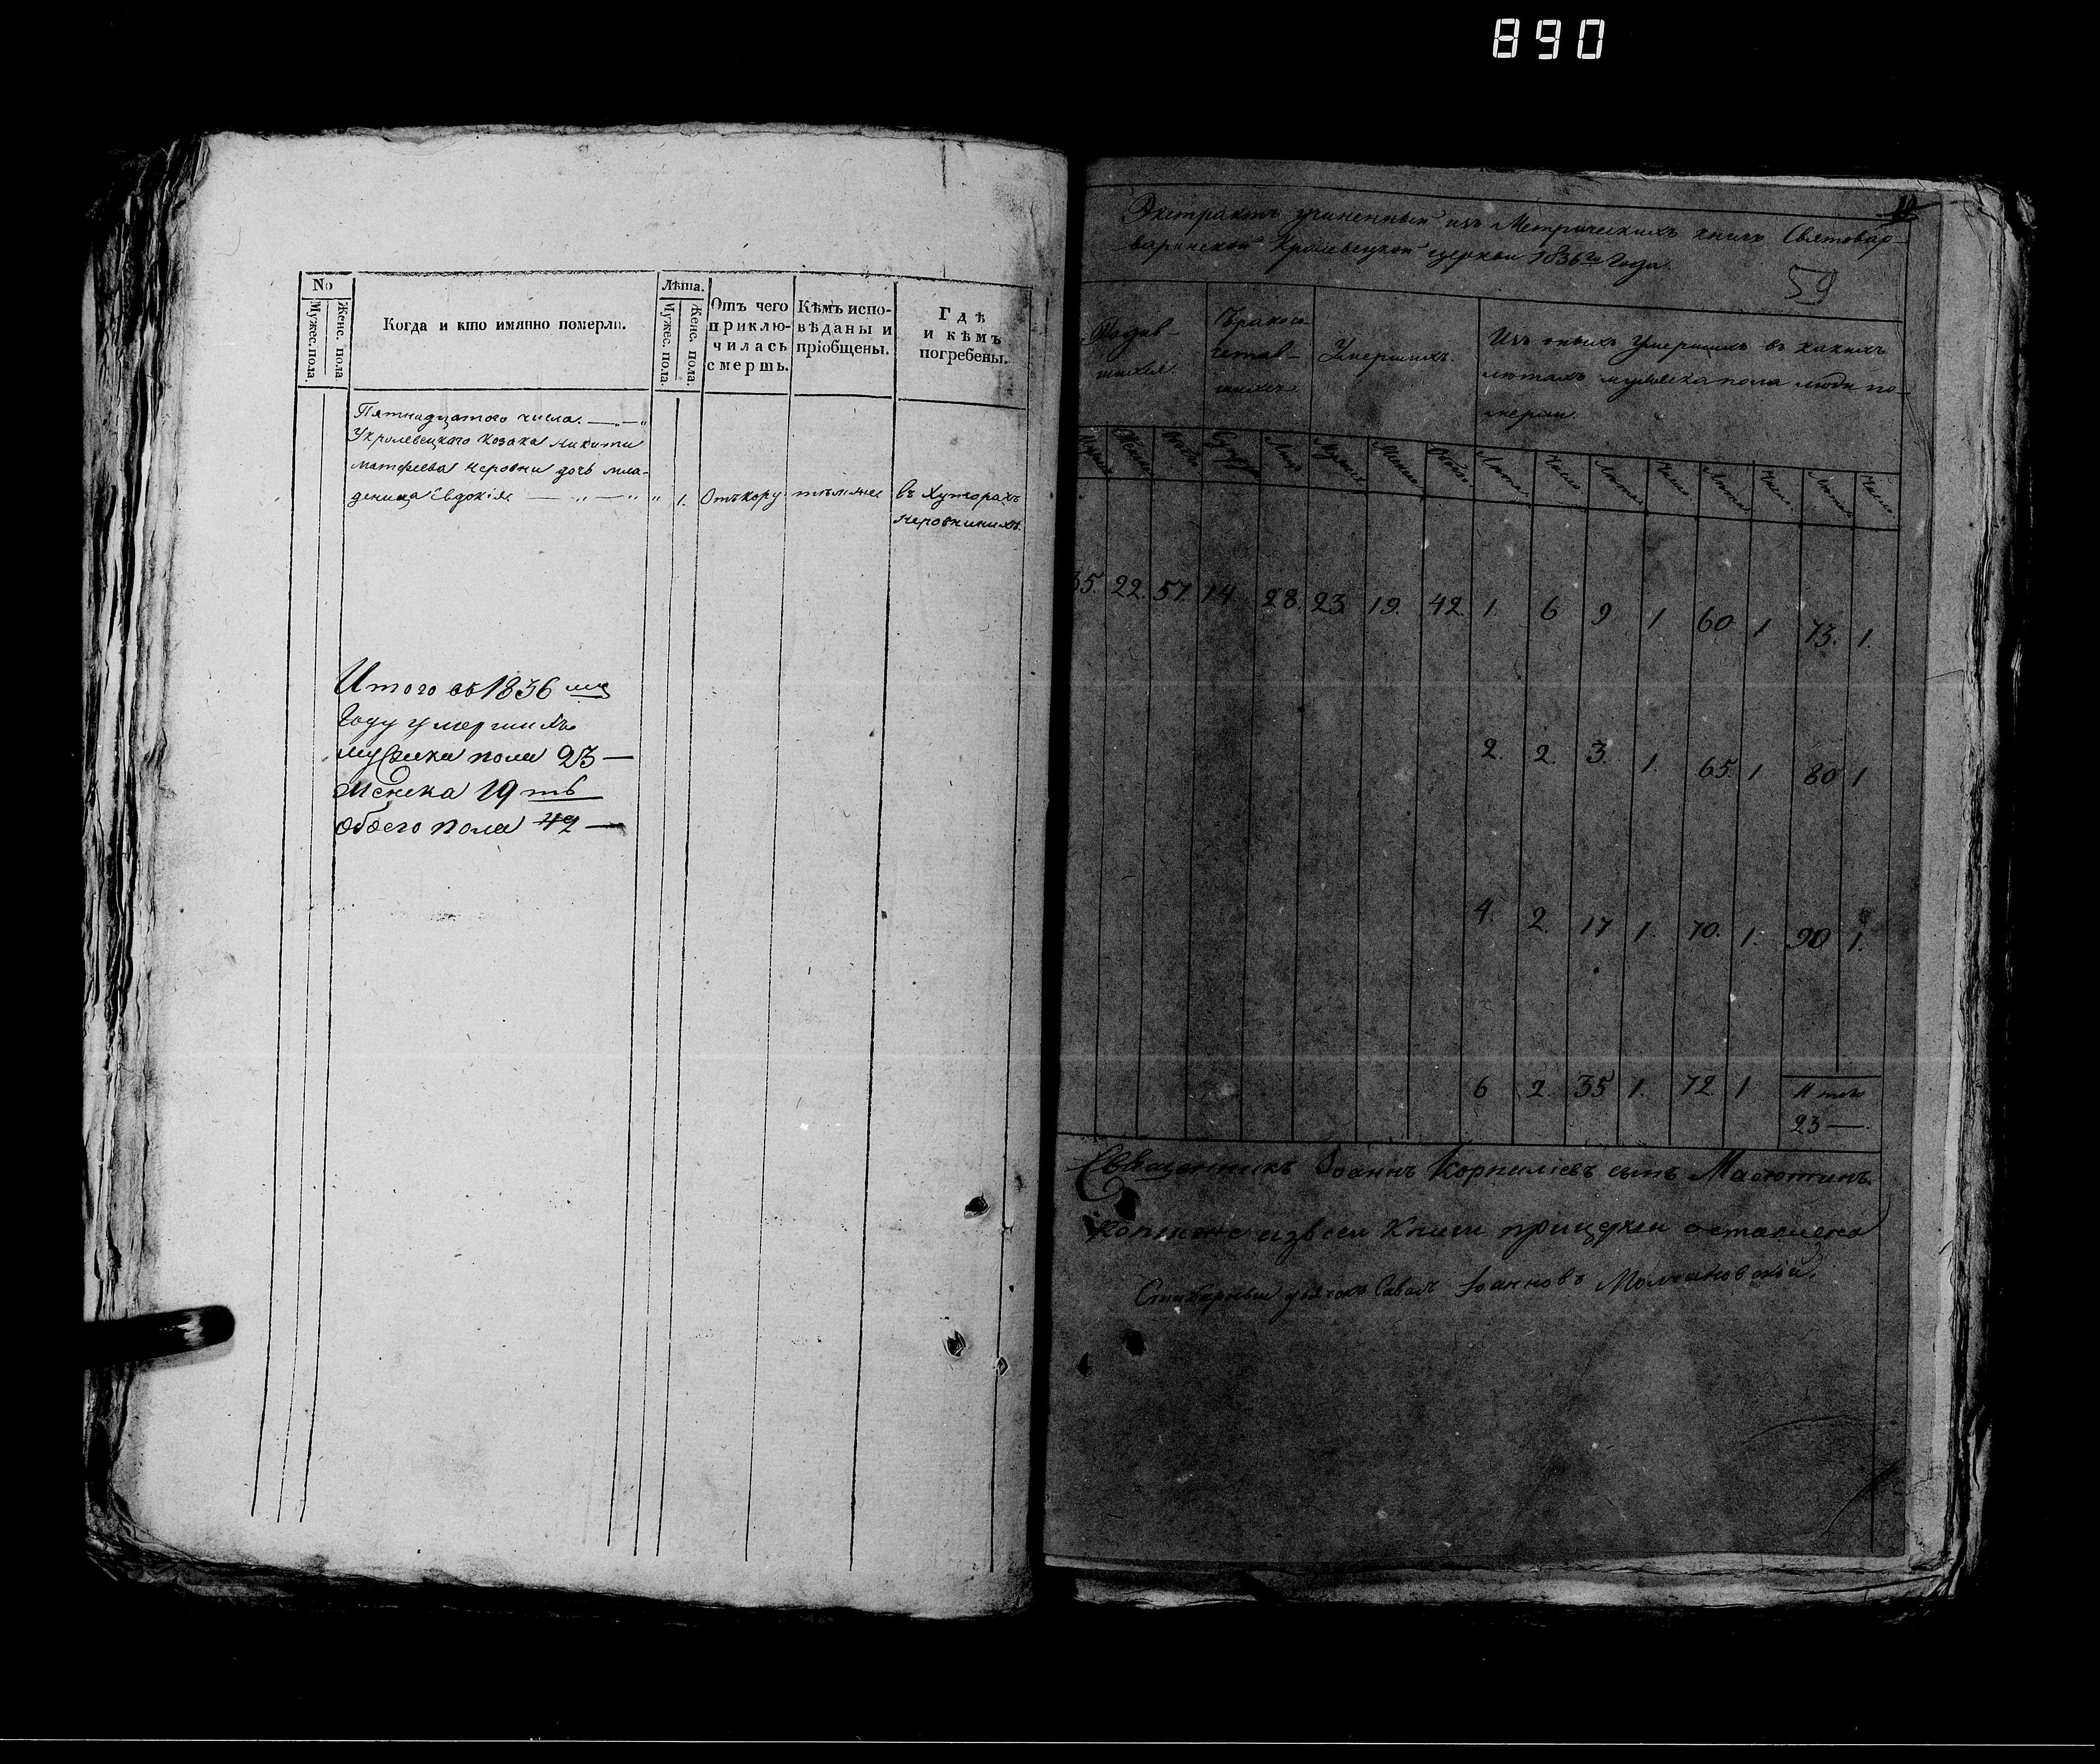 890
No
Мужес. пола.
Женс. пола
Когда и кто имянно померли.
Лѣта.
Мужес. пола.
Женс. пола.
Отъ чего
приклю-
чилась
смерть.
Кѣмъ испо-
вѣданы и
пріобщены.
Гдѣ
и кѣмъ
погребены.
Пятнадцатого числа.
Укролевецкаго Козака Никити
Матфеева Неровни дочь мла-
деница Евдокія 1. Отъ кору тѣмже въ Хуторахъ
Неровнинихъ.
Итого въ 1836 мъ
Году умершихъ
мужска пола 23 —
Женска 19 ть
обоего пола 42 —
10
Экстрактъ учиненный изъ Метрическихъ книгъ Святовар-
варинской Кролевецкой церкви 1836 го Года.
59
Родив
шихся.
Бракосо
четав-
шихся
Умершихъ.
Изъ оныхъ умершихъ въ какихъ
лѣтахъ мужеска пола люди по-
мерли.
Лѣта Число Лѣта Число Лѣта Число Лѣта Число
35. 22. 57. 14 28. 23. 19. 42 1. 6 9 1 60 1 73. 1.
2. 2. 3. 1. 65. 1 80 1
4. 2. 17 1. 70. 1. 90 1.
6 2. 35 1. 72 1 Итого
23 —.
Священникъ Іоаннъ Корниліевъ сынъ Масютинъ.
Копія изъ сей Книги при церкви оставлена
Іоанновъ Молчановскій.